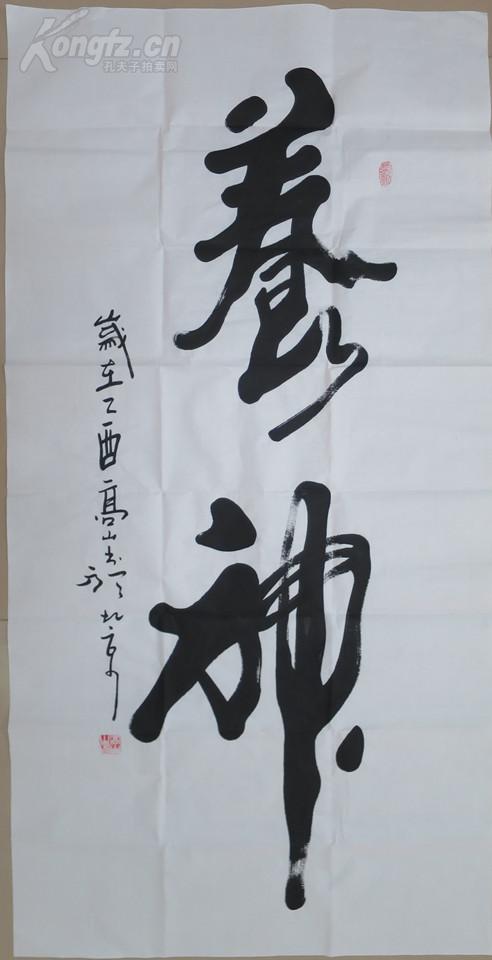 Kongfz.cn
孔夫子拍卖网
養神
歲在乙酉高山書於北京